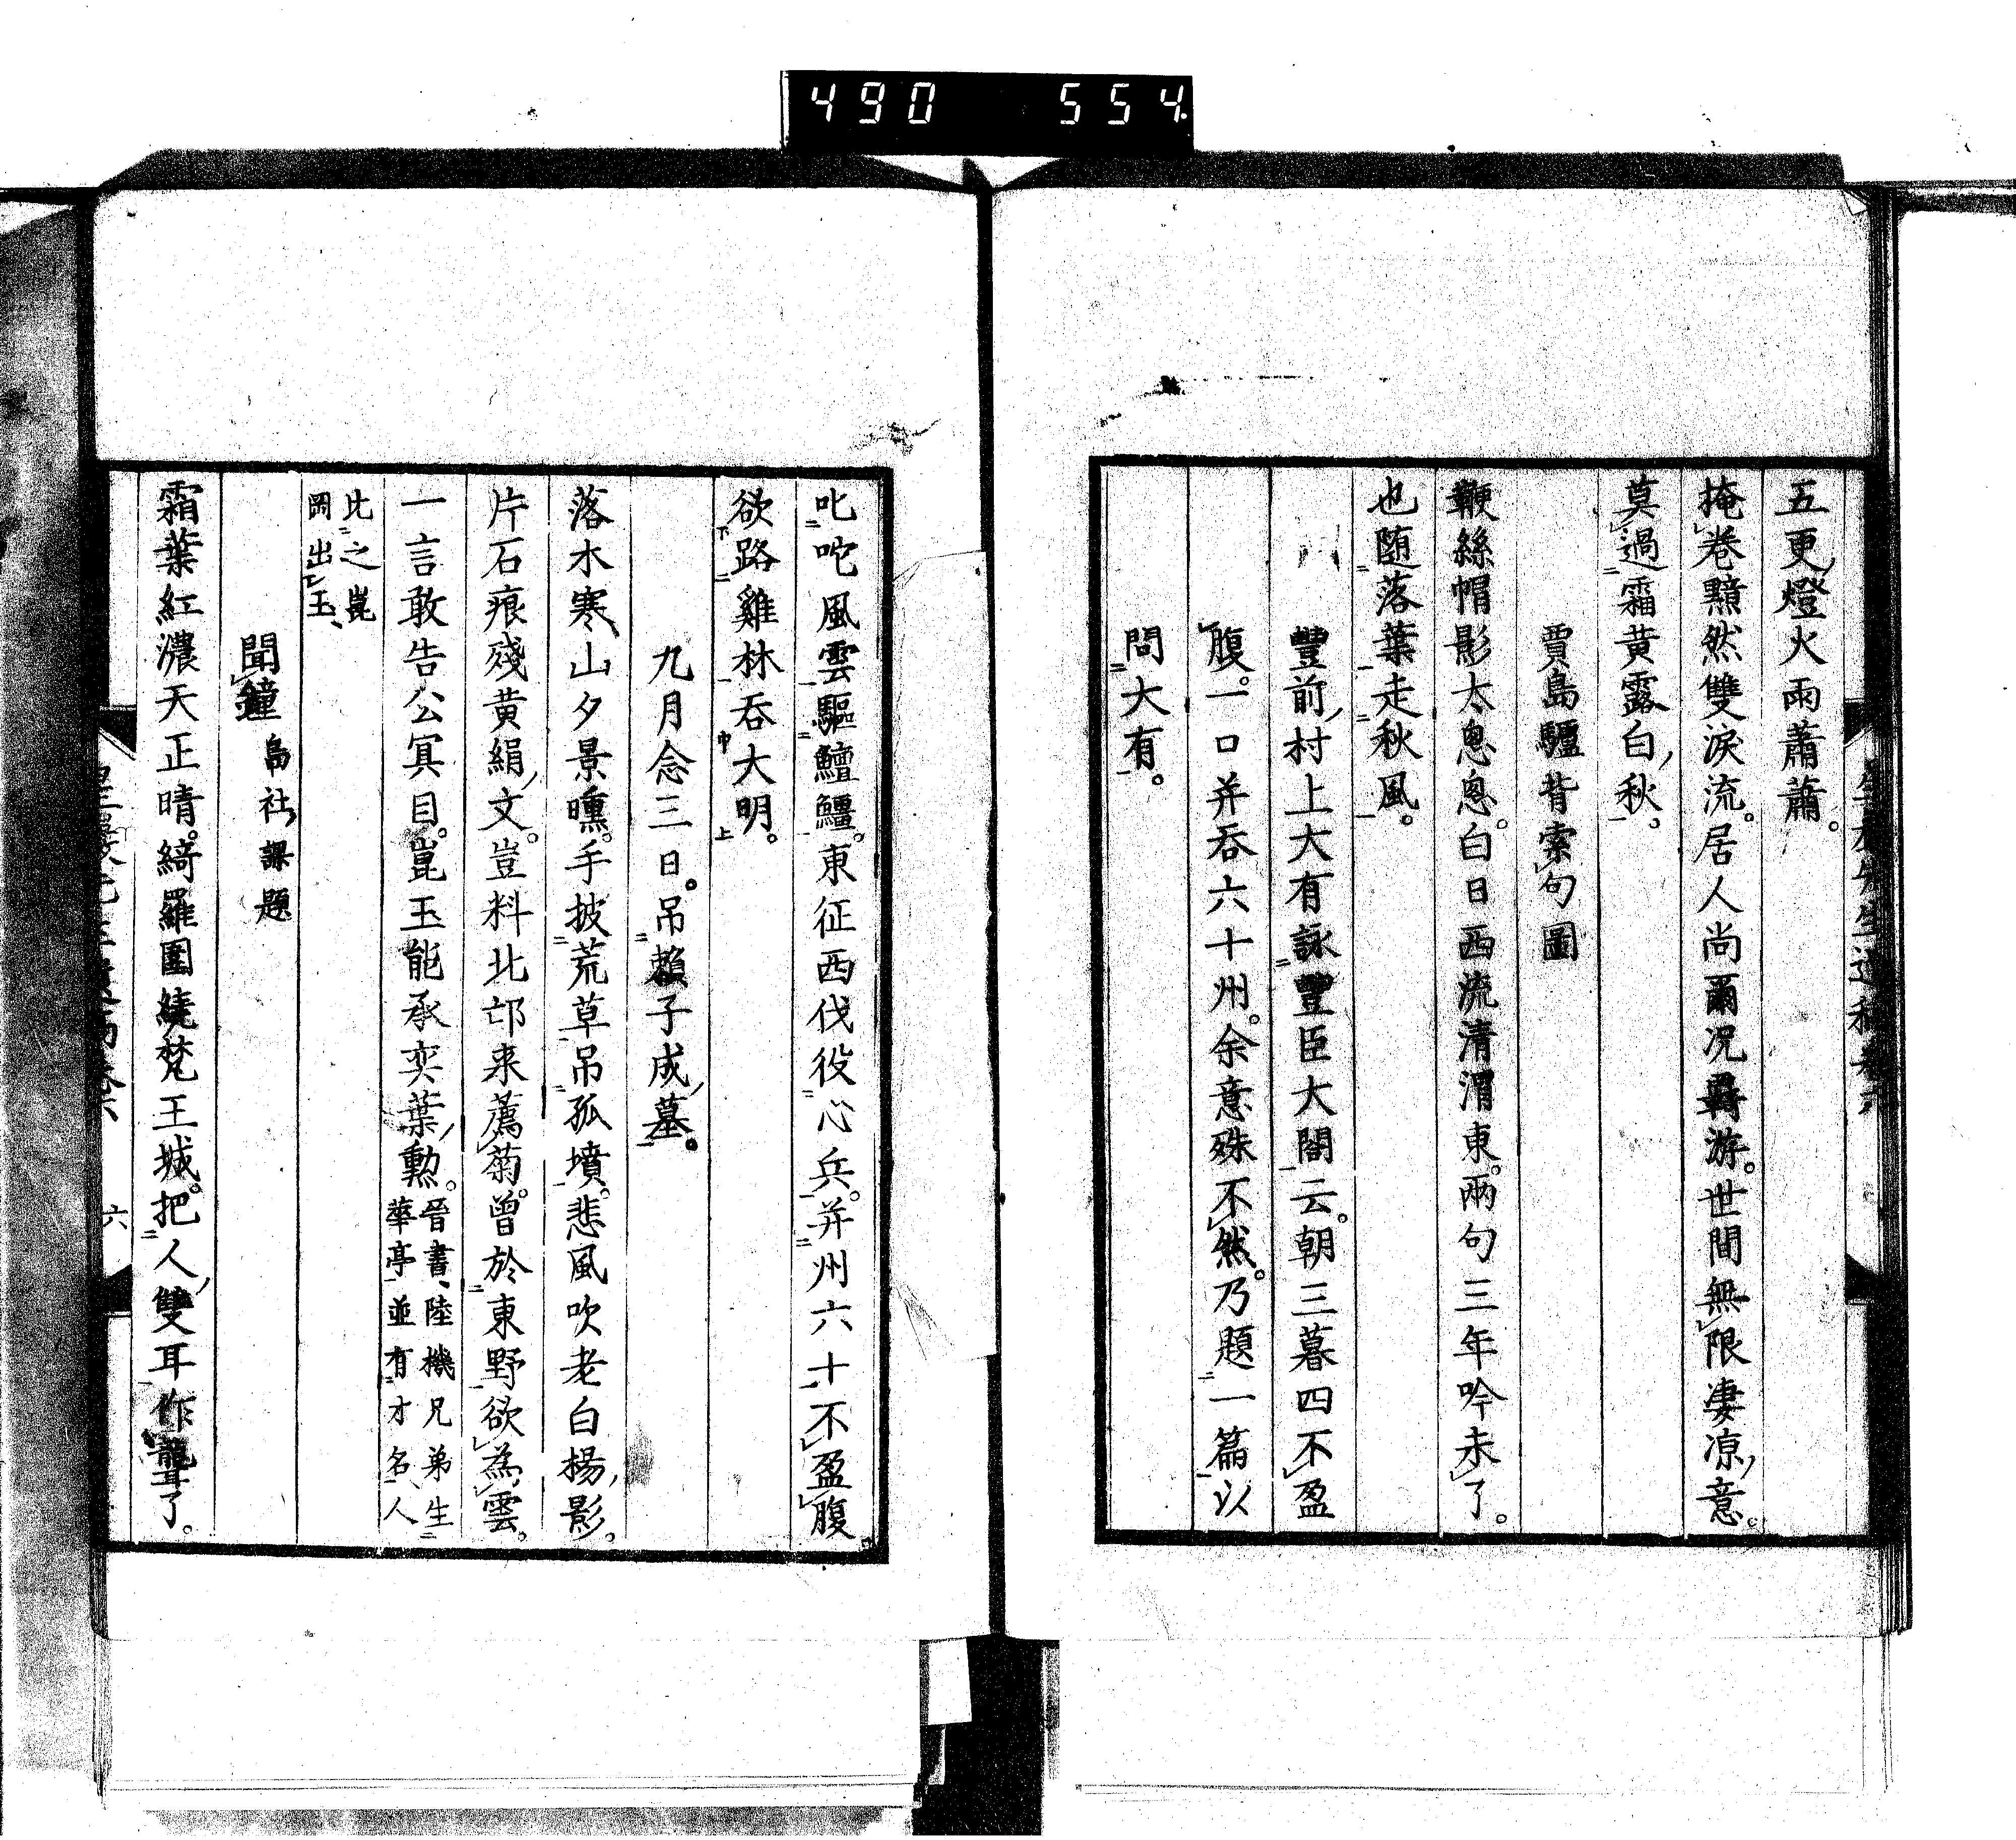 490 554
五更燈火雨蕭蕭。
掩卷黯然雙淚流。居人尚爾况羇游。世間無限凄凉意。
莫過霜黄露白秋。
賈島驢背索句圖
鞭絲帽影太悤悤。白日西流清渭東。兩句三年吟未了。
也随落葉走秋風。
豐前村上大有詠豐臣大閤云。朝三暮四不盈
腹。一口并吞六十州。余意殊不然。乃題一篇以
問大有。
叱咜風雲驅鱣鱷。東征西伐役心兵。并州六十不盈腹
欲路雞林吞大明。
九月念三日。吊賴子成墓。
落木寒山夕景曛。手披荒草吊孤墳。悲風吹老白楊影。
片石痕殘黄絹文。豈料北邙来薦菊。曾於東野欲為雲。
一言敢告公冥目。崑玉能承奕葉勲。晉書、陸機兄弟生
華亭並有才名、人
比之崑
岡出玉、
聞鐘 島社課題
霜葉紅濃天正晴。綺羅圍繞梵王城。把人雙耳作聾了。
六